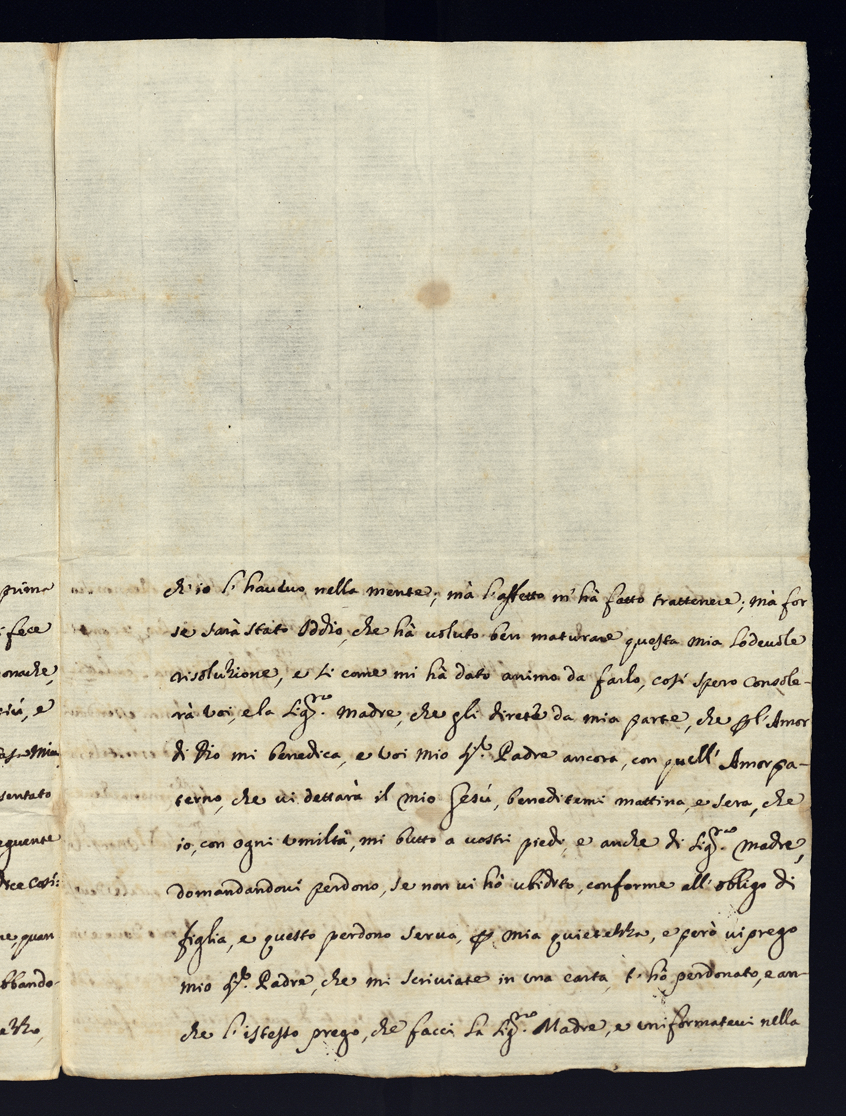 prima
fece
onache,
esù, e
sentato
eguente
dice così:
ne quan
bbando-
ch'io l'havevo nella mente; mà l'affetto m'hà fatto trattenere; mà for
se sarà stato Iddio, che hà voluto ben maturare questa mia lodevole
risoluzione, e si come mi hà dato animo da farlo, così spero console-
rà voi, e la Sig.ra Madre, che gli direte da mia parte, che p l'Amor
di Dio mi benedica, e voi mio Sig.r Padre ancora, con quell'Amor pa-
terno, che vi dettarà il mio Gesù, beneditemi mattina, e sera, che
io, con ogni umiltà, mi butto a vostri piedi, e anche di Sig.ra Madre,
domandandovi perdono, se non vi hò ubidito, conforme all'obligo di
figlia, e questo perdono serva, p mia quietezza, e però vi prego
mio Sig.r Padre, che mi scriviate in una carta, t'hò perdonato, e an-
che l'istesso prego, che facci la Sig.ra Madre, e uniformatevi nella